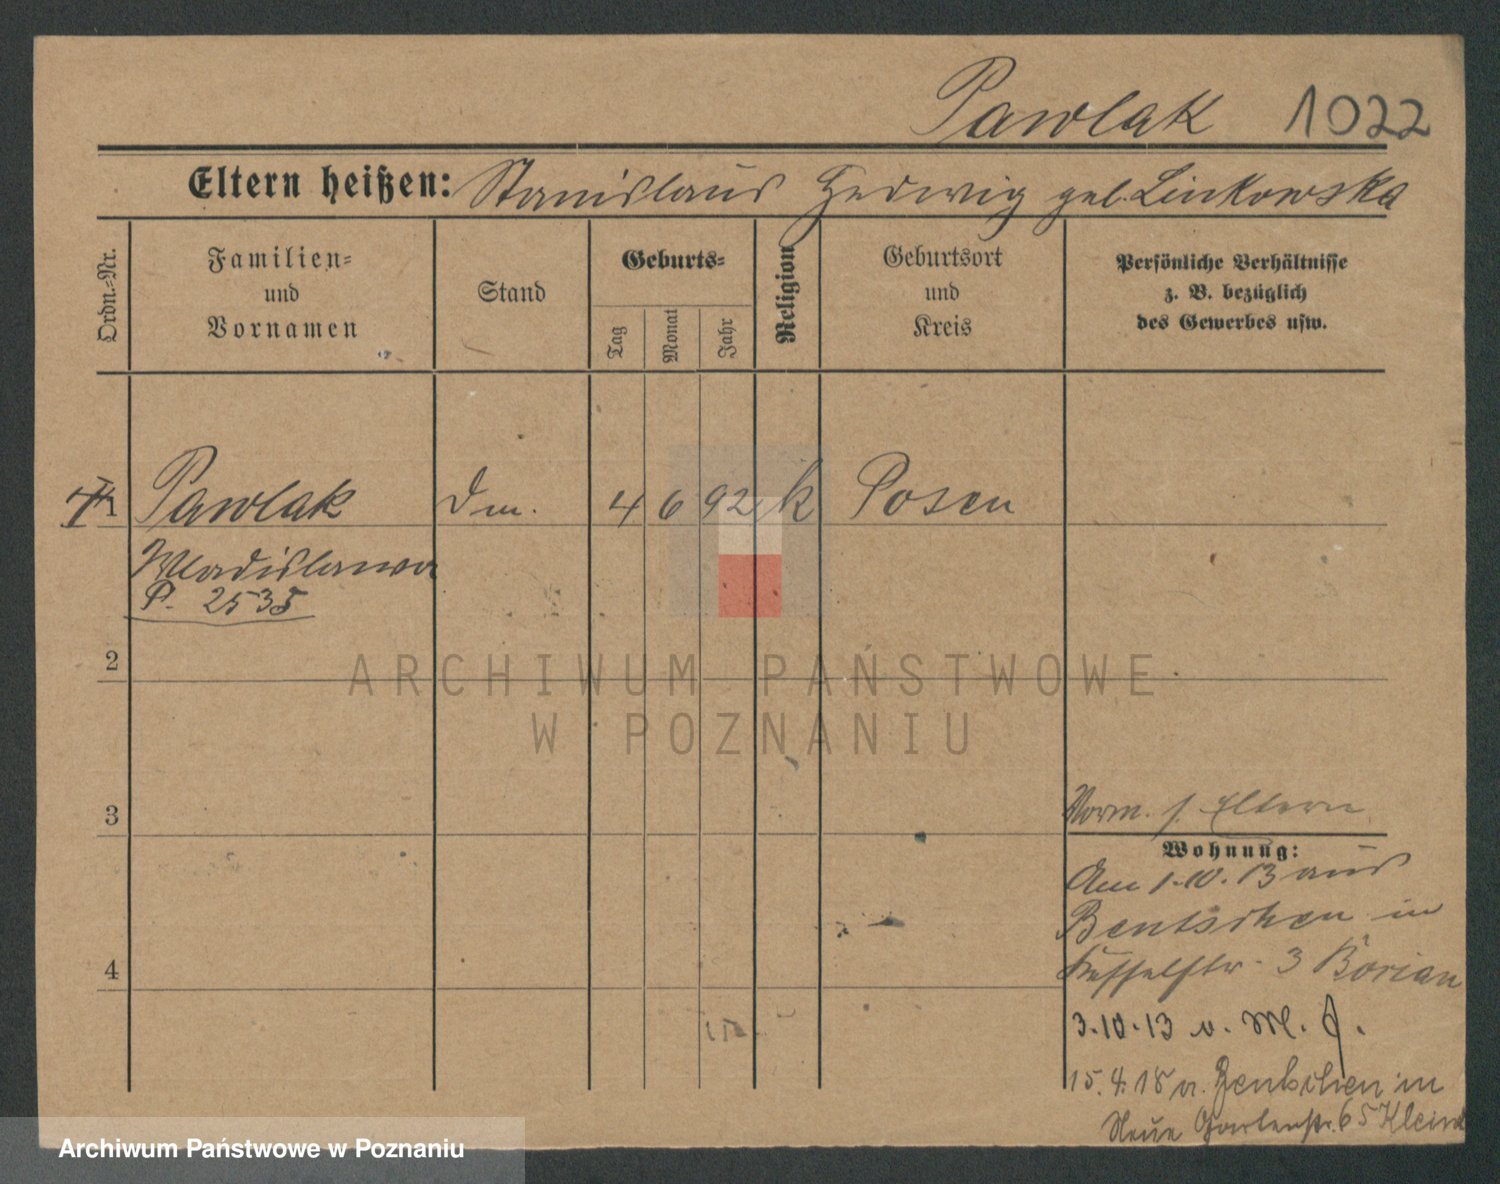 Pawlak 1022
Eltern heißen: Stanislaus Hedwig geb. Linkowska
Ordn.-Nr.
Familien-
und
Vornamen
Stand
Geburts-
Tag
Monat
Jahr
Religion
Geburtsort
und
Kreis
Persönliche Verhältnisse
z. B. bezüglich
des Gewerbes usw.
1 Pawlak Dm. 4 6 92 k Posen
Wladislawa
P. 2535
2
ARCHIWUM PAŃSTWOWE
W POZNANIU
3
Vorm. s. Eltern
Wohnung:
Am 1.10.13 aus
Bentschen in
3 Borian
4
3.10.13 v. M.
15.4.18 v. Bentschen in
Neue Gartenstr. 65 Klein
Archiwum Państwowe w Poznaniu